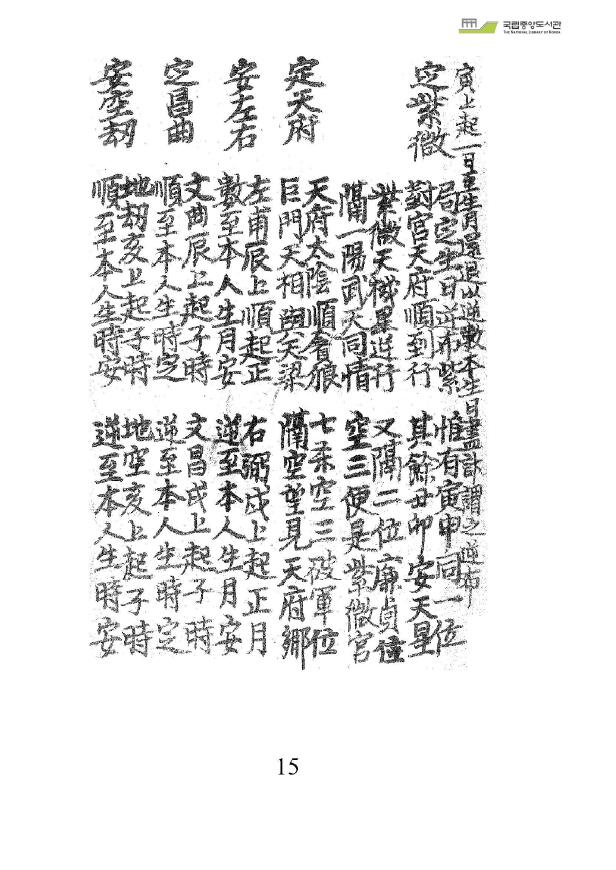 국립중앙도서관
THE NATIONAL LIBRARY OF KOREA
寅上起一日至生月還退以逆數本生日盡訣謂之逆布
定紫微
局定生日逆布紫 惟有寅申同一位
對官天府順到行 其餘丑卯安天星
紫微天機星逆行 又隔二位廉貞位
隔一陽武天同情 空三便是紫微官
定天府
天府太陰順貪狼 七柔空三破軍位
巨門天相與天梁 隔空望見天府鄉
安左右
左甫辰上順起正 右弼戌上起正月
數至本人生月安 逆至本人生月安
定昌曲
文曲辰上起子時 文昌戌上起子時
順至本人生時定 逆至本人生時定
安空劫
地劫亥上起子時 地空亥上起子時
順至本人生時安 逆至本人生時安
15